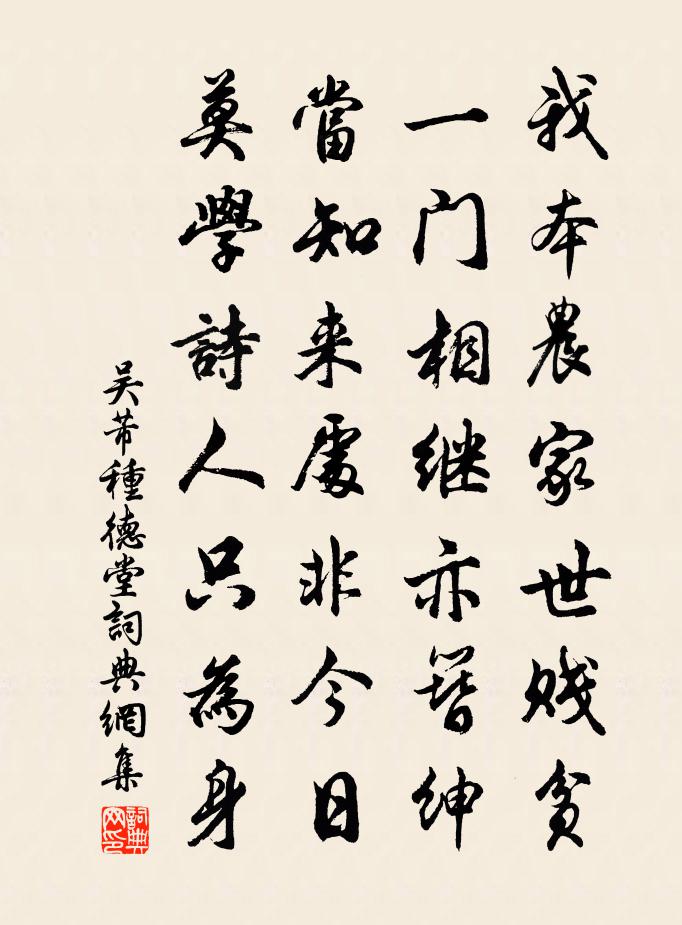 我本農家世賤貧
一门相継亦簪紳
當知来處非今日
莫學詩人只為身
吴芾種德堂詞典網集
詞典网印